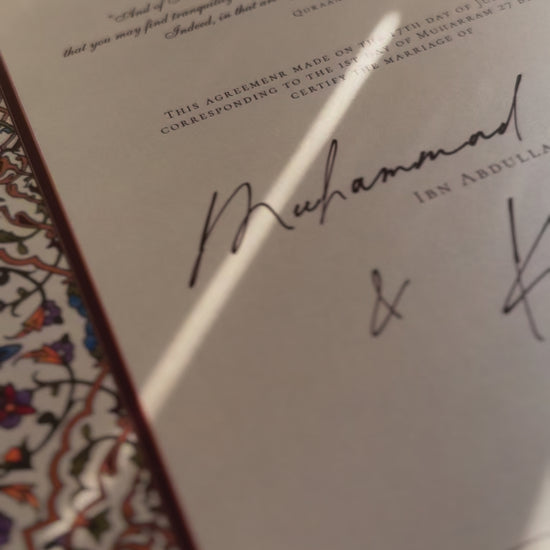 "And of
that you may find tranquility
Indeed, in that are
QURAAN
THIS AGREEMENR MADE ON THE 27TH DAY OF
CORRESPONDING TO THE 1ST DAY OF MUHARRAM 27
CERTIFY THE MARRIAGE OF
Muhammad
IBN ABDULLA
&